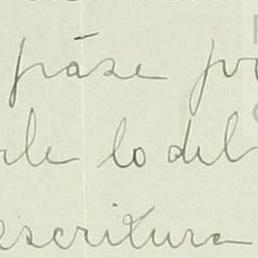 páse po
rle lo del
escritura